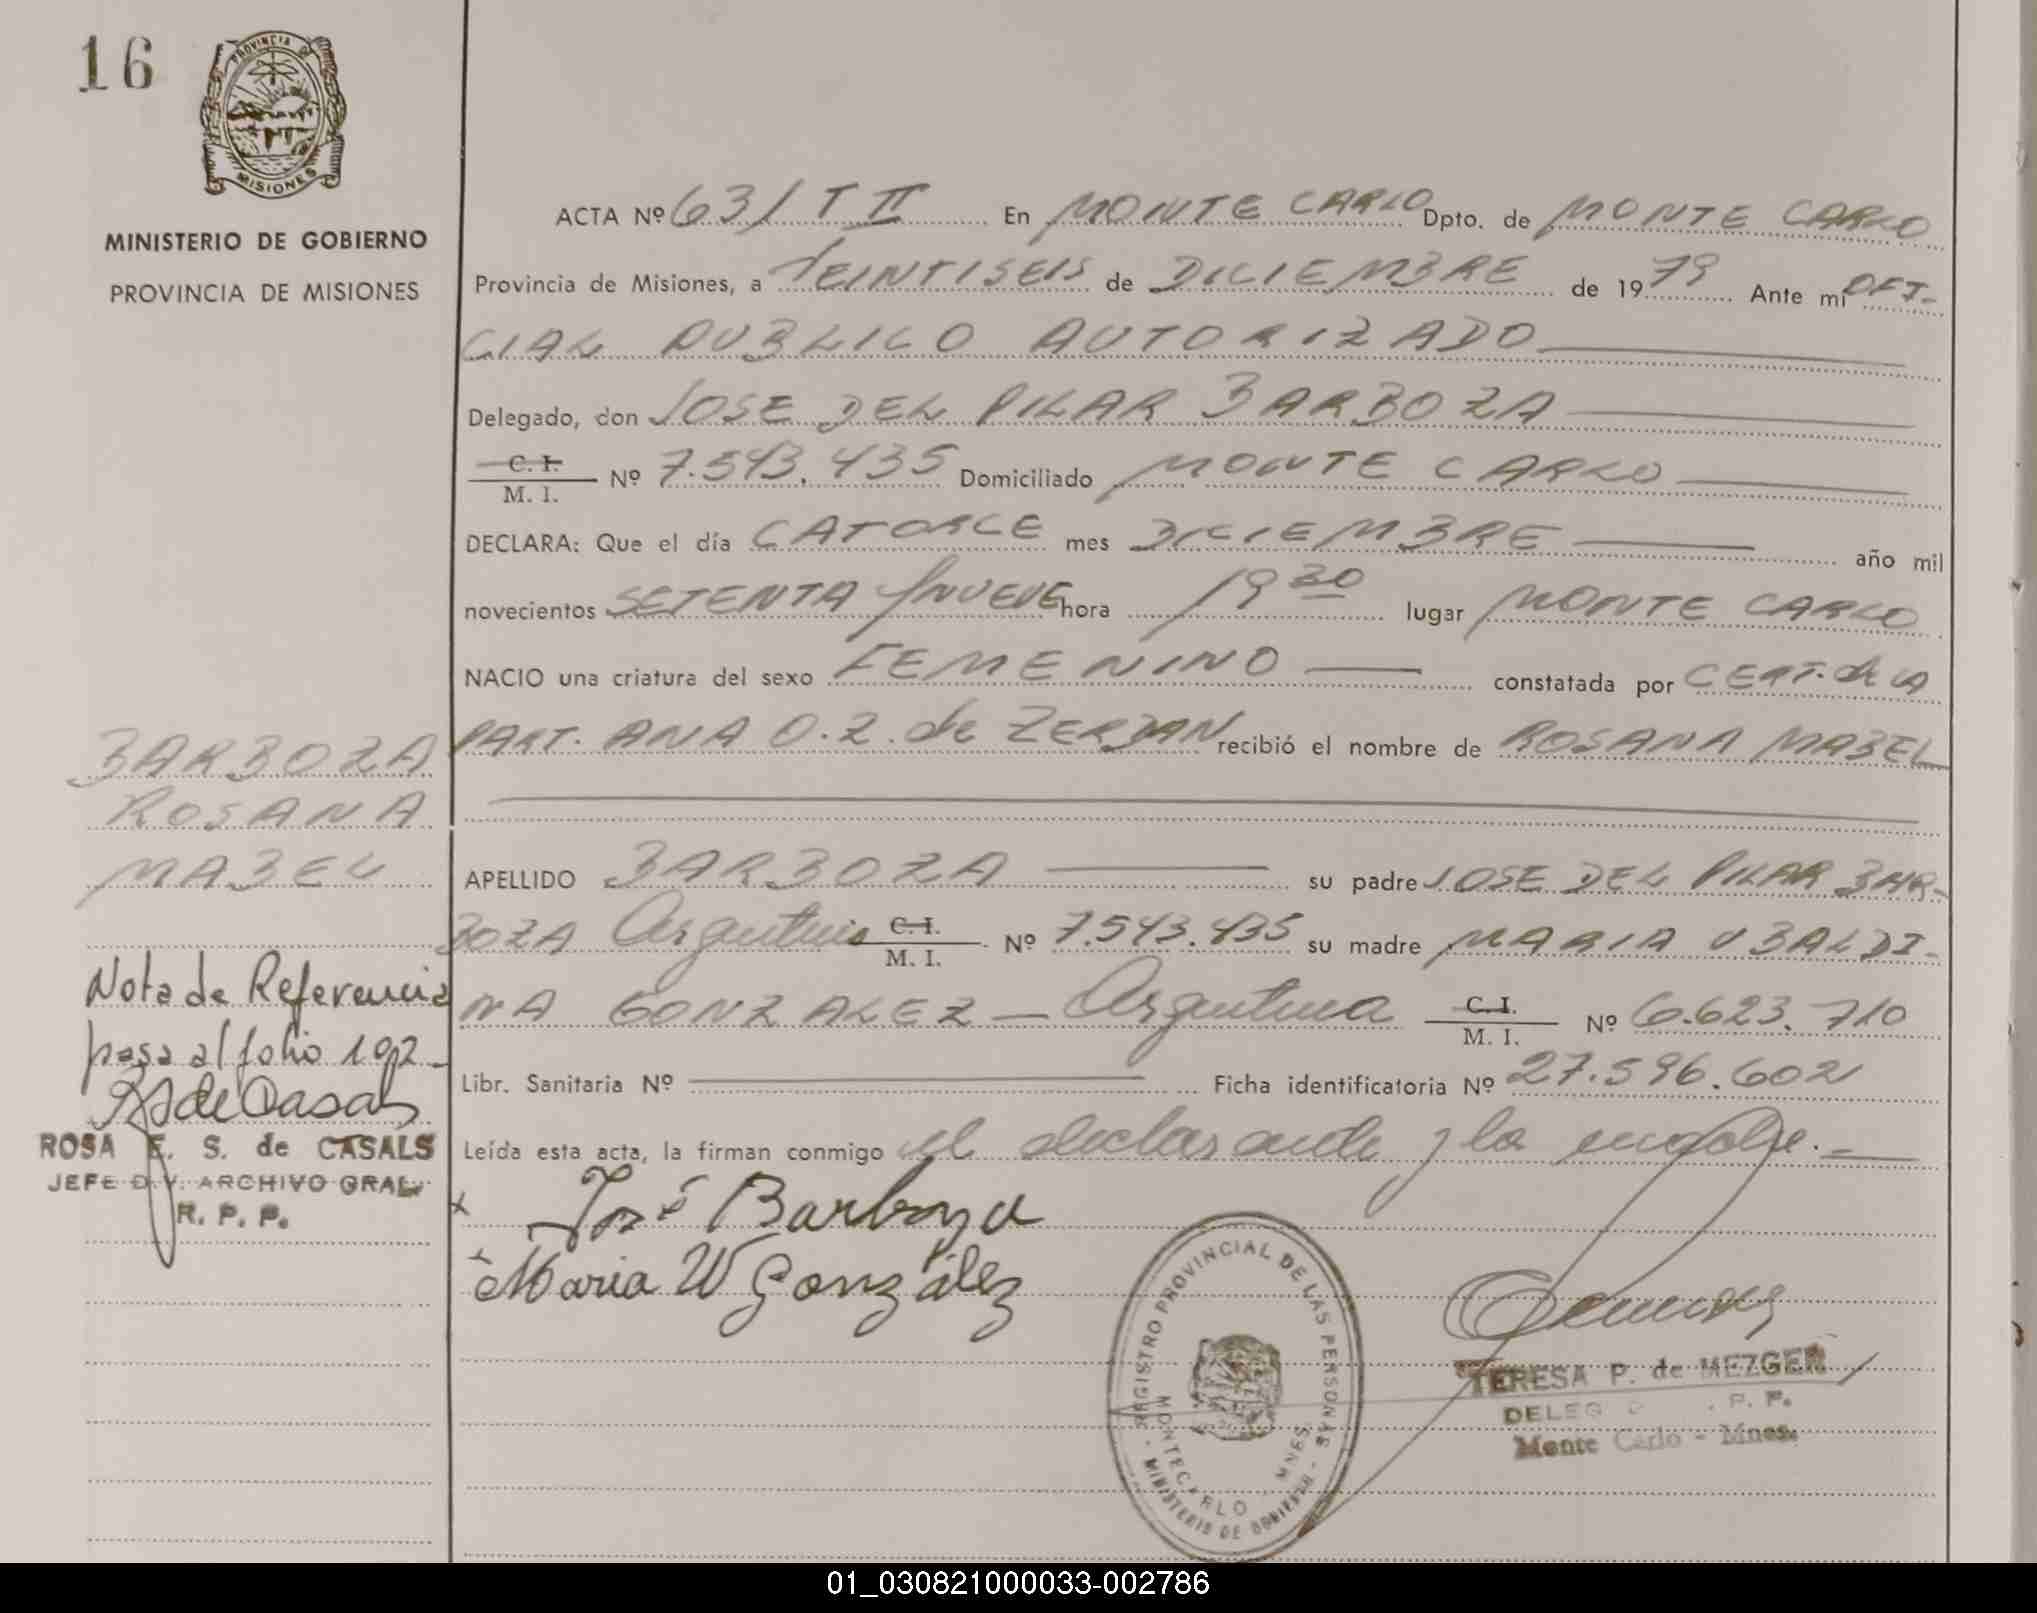 16
PROVINCIA DE
MISIONES
MINISTERIO DE GOBIERNO
PROVINCIA DE MISIONES
ACTA Nº 63/ T II En MONTE CARLO Dpto. de MONTE CARLO
Provincia de Misiones, a VEINTISEIS de DICIEMBRE de 1979 Ante mi OFI-
CIAL PUBLICO AUTORIZADO
Delegado, don JOSE DEL PILAR BARBOZA
C. I. / M. I. Nº 7.543.435 Domiciliado MONTE CARLO
DECLARA: Que el día CATORCE mes DICIEMBRE año mil
novecientos SETENTA Y NUEVE hora 19 30 lugar MONTE CARLO
NACIO una criatura del sexo FEMENINO constatada por CERT. de LA
PART. ANA O. Z. de ZERDAN recibió el nombre de ROSANA MABEL
BARBOZA
ROSANA
MABEL
APELLIDO BARBOZA su padre JOSE DEL PILAR BAR-
BOZA Argentino C. I. / M. I. Nº 7.543.435 su madre MARIA UBALDI-
NA GONZALEZ - Argentina C. I. / M. I. Nº 6.623.710
Libr. Sanitaria Nº Ficha identificatoria Nº 27.596.602
Leída esta acta, la firman conmigo el declarante y la madre.-
Nota de Referencia
pasa al folio 192-
RSdeCasals
ROSA E. S. de CASALS
JEFE DIV. ARCHIVO GRAL.
R. P. P.
x José Barboza
x Maria W González
REGISTRO PROVINCIAL DE LAS PERSONAS
MONTECARLO - MNES.
MINISTERIO DE GOBIERNO
TERESA P. de MEZGER
DELEG . P. P.
Monte Carlo - Mnes.
01_030821000033-002786